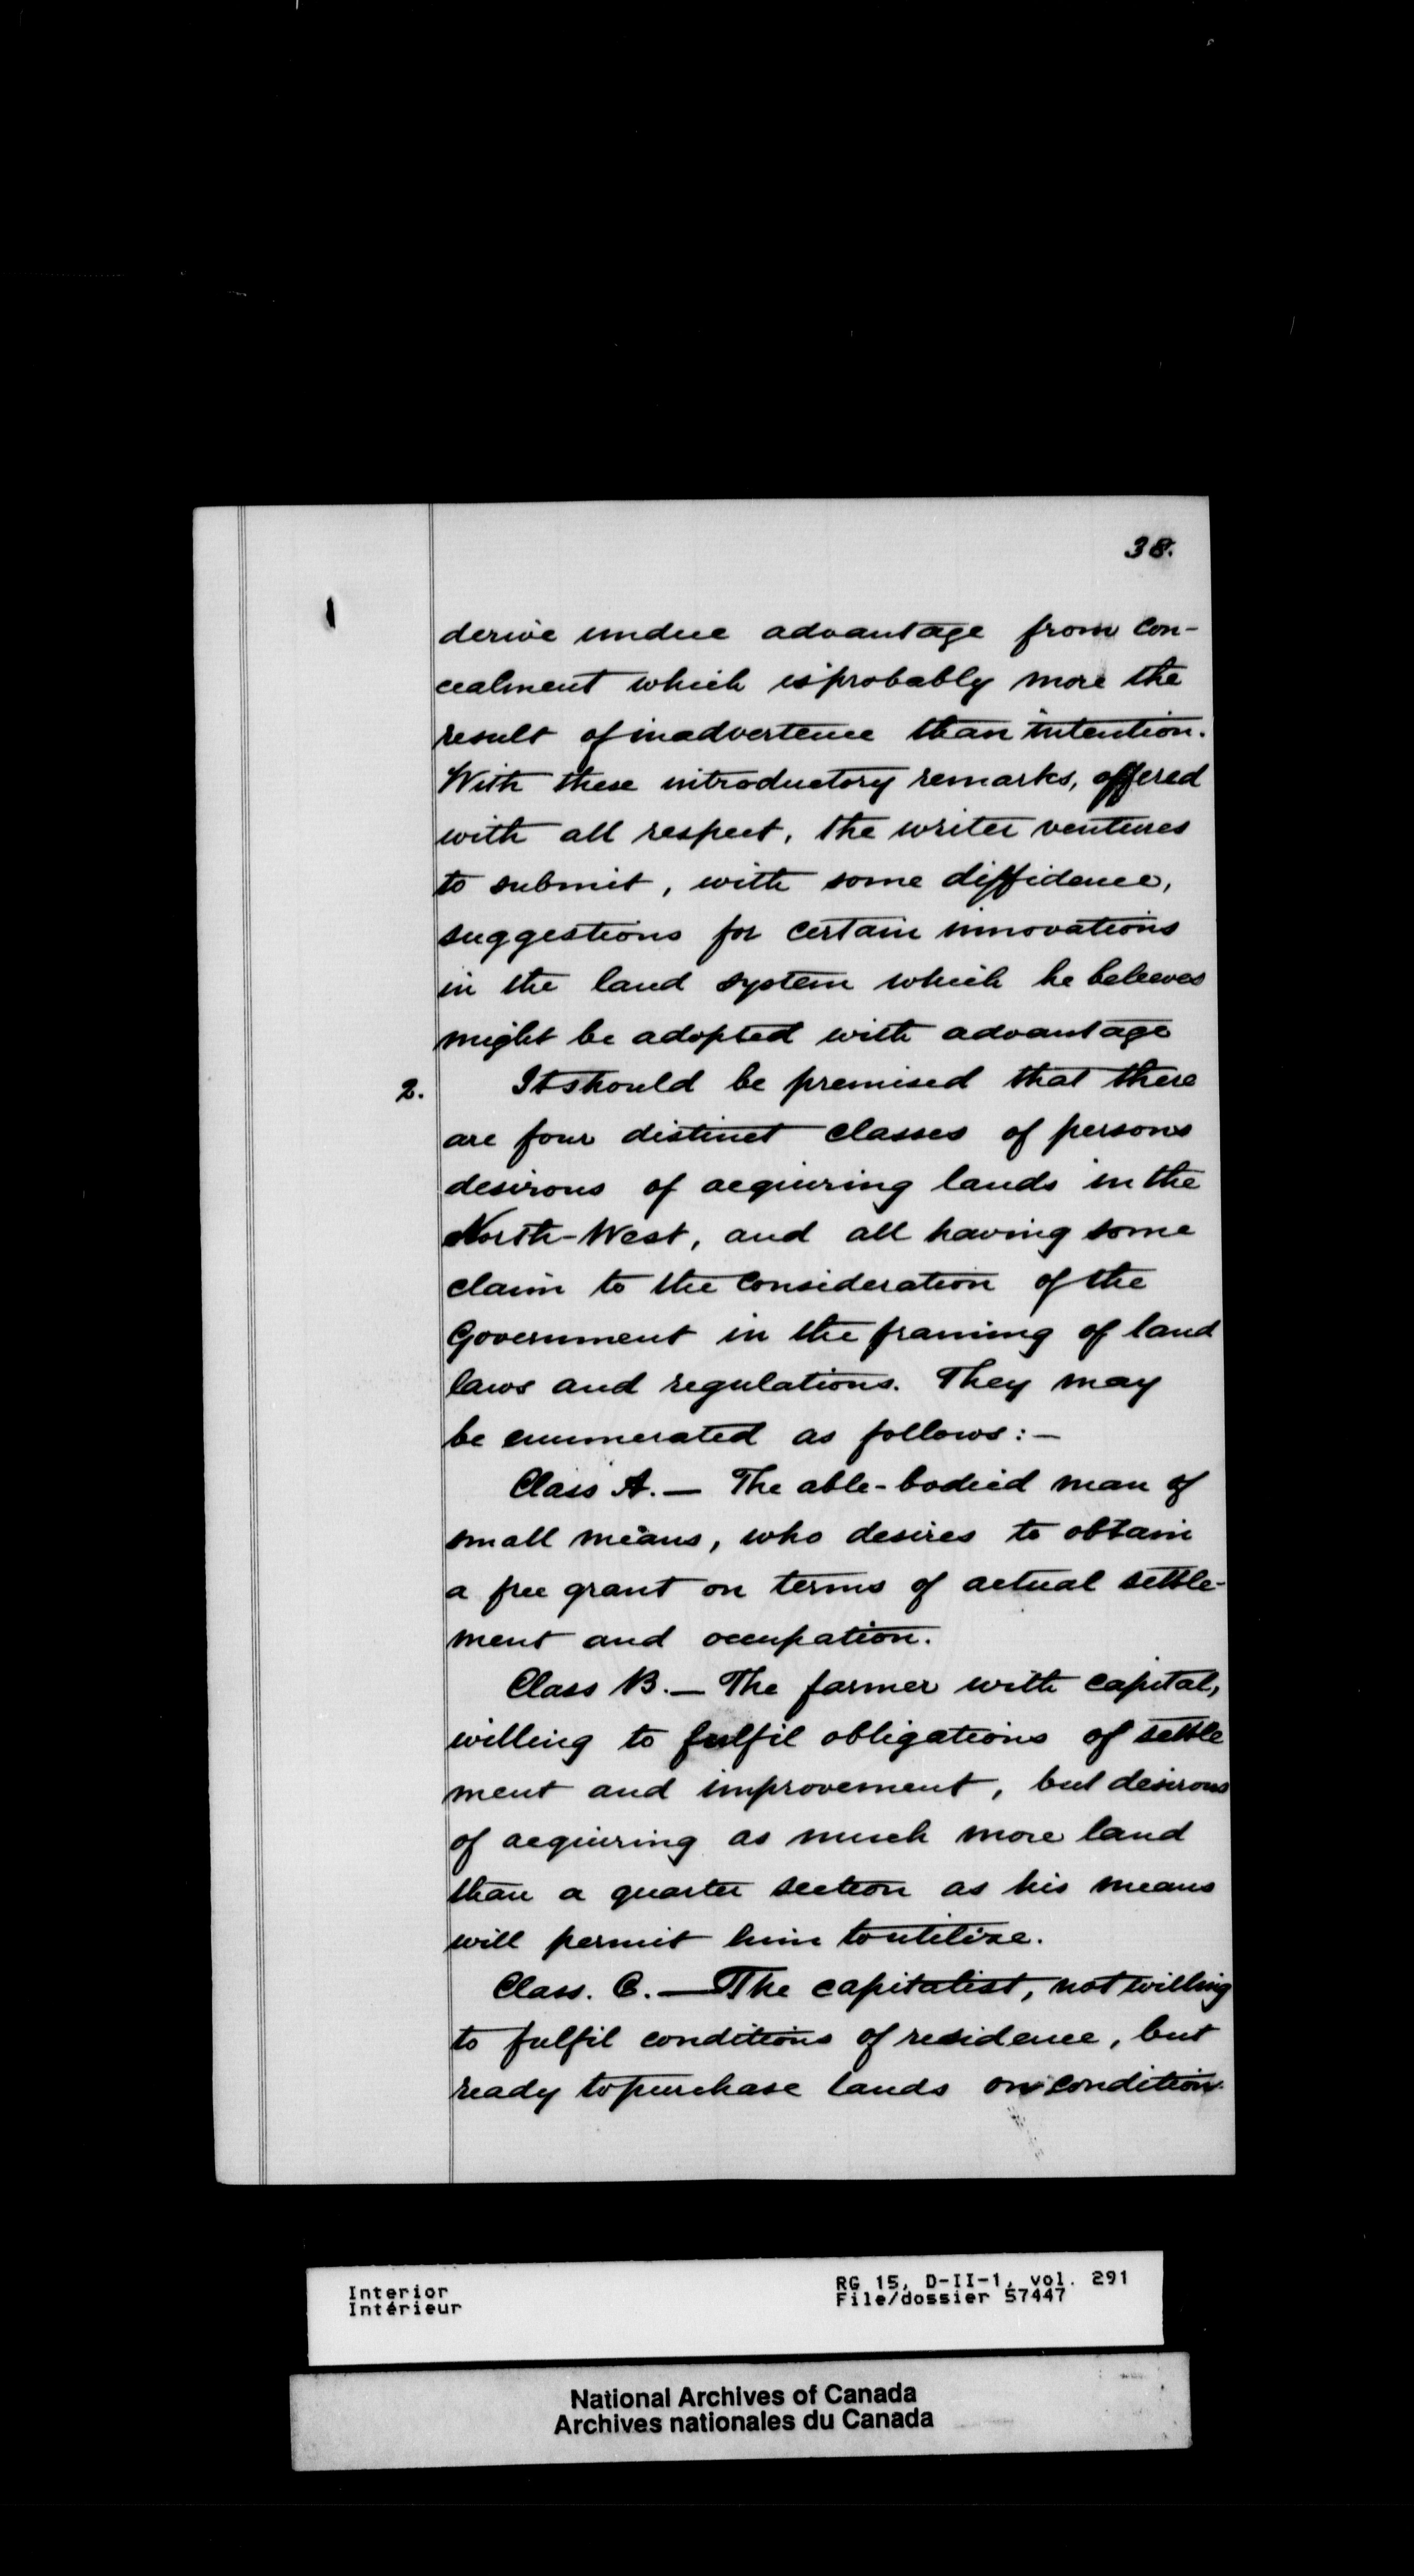 38.
derive undue advantage from con-
cealment which is probably more the
result of inadvertence than intention.
With these introductory remarks, offered
with all respect, the writer ventures
to submit, with some diffidence,
suggestions for certain innovations
in the land system which he believes
might be adopted with advantage
2. It should be premised that there
are four distinct classes of persons
desirous of acquiring lands in the
North-West, and all having some
claim to the consideration of the
Government in the framing of land
laws and regulations. They may
be enumerated as follows:—
Class A.— The able-bodied man of
small means, who desires to obtain
a free grant on terms of actual settle-
ment and occupation.
Class B.— The farmer with capital,
willing to fulfil obligations of settle
ment and improvement, but desirous
of acquiring as much more land
than a quarter section as his means
will permit him to utilize.
Class. C.— The capitalist, not willing
to fulfil conditions of residence, but
ready to purchase lands on condition
Interior
Intérieur
RG 15, D-II-1, vol. 291
File/dossier 57447
National Archives of Canada
Archives nationales du Canada